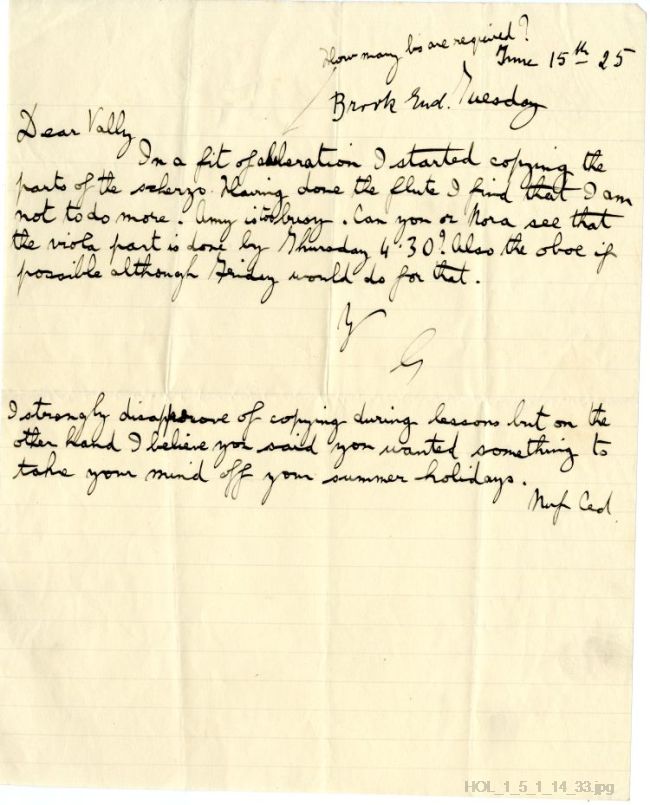 How many bis are required?
June 15th 25
Brook End. Tuesday
Dear Vally
In a fit of abberation I started copying the
parts of the scherzo. Having done the flute I find that I am
not to do more. Amy is too busy. Can you or Nora see that
the viola part is done by Thursday 4.30? Also the oboe if
possible although Friday would do for that.
Y
G
I strongly disapprove of copying during lessons but on the
other hand I believe you said you wanted something to
take your mind off your summer holidays.
Nuf Ced.
HOL_1_5_1_14_33.jpg